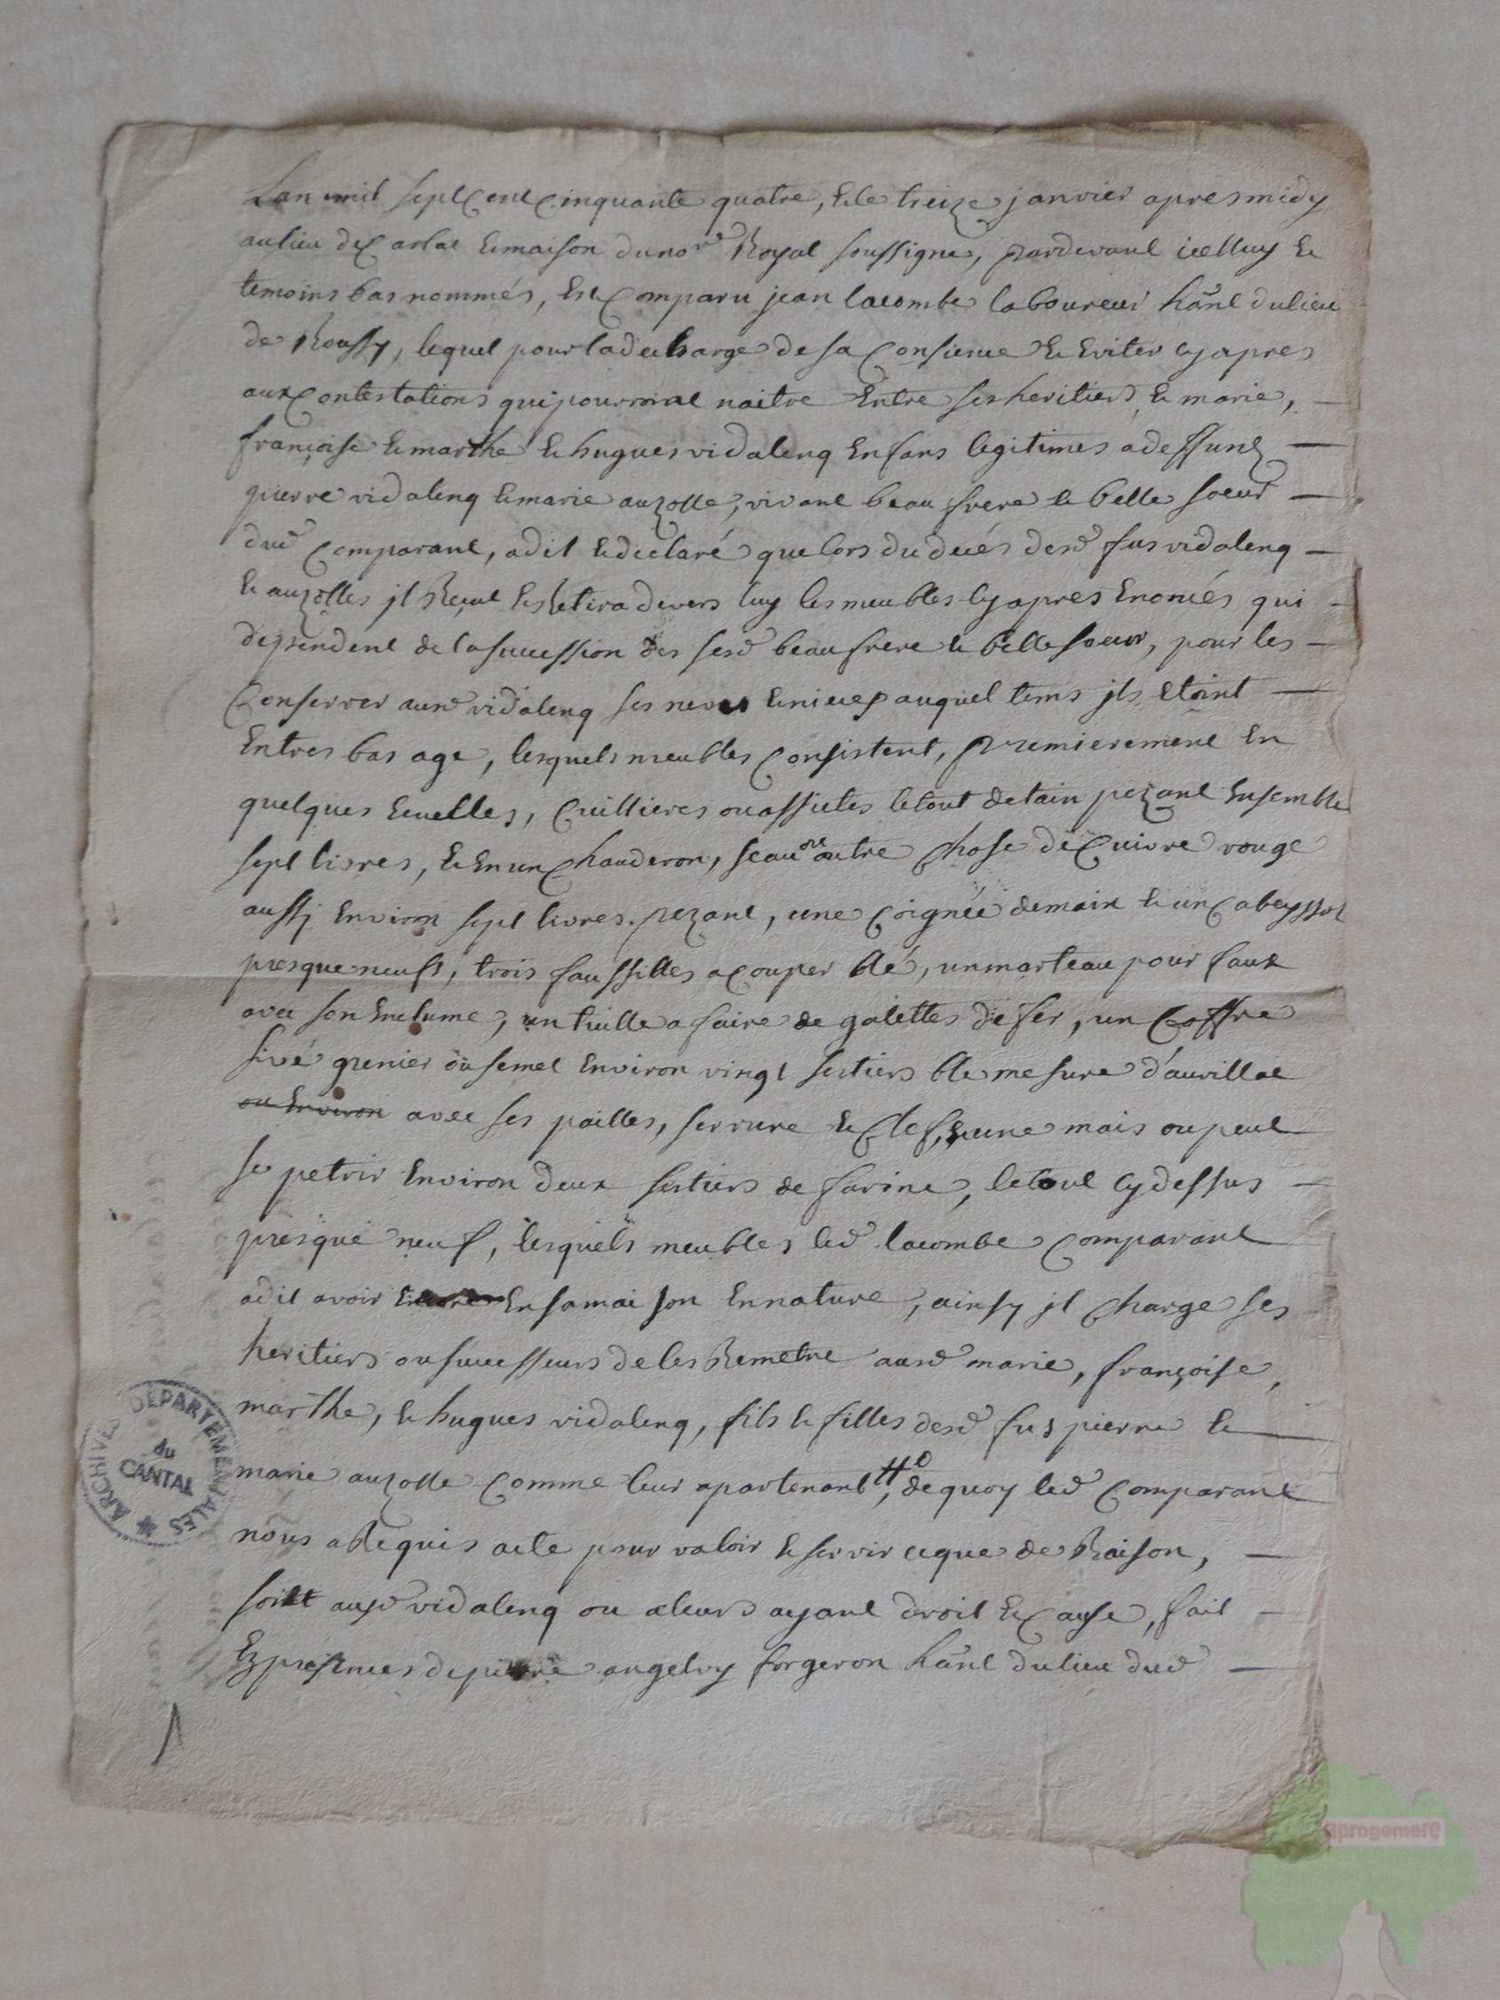 Lan mil sept Cent Cinquante quatre, & le treize janvier apres midy
au lieu de Carlat & maison du no.re Royal soussigné, pardevant icelluy &
temoins bas nommés, est Comparu jean lacombe laboureur hãnt du lieu
de Roussy, lequel pour la decharge de sa Consience & Eviter cy apres
aux Contestations qui pourront naitre Entre ses heritiers, & marie,
françoise & marthe & hugues vidalenq Enfans legitimes a deffunz
pierre vidalenq & marie auzolle, vivant beau frere & belle soeur
dud Comparant, a dit & declaré que lors du decés desd fus vidalenq
& auzolles jl Reçut & Retira devers luy les meubles cy apres Enoncés qui
dependent de la succession des sesd beau frere & belle soeur, pour les
Conserver ausd vidalenq ses neveus & nieces auquel tems jls Etoint
Entres bas age, lesquels meubles Consistent, premierement En
quelques Ecuelles, Cuillieres ou assiettes le tout detain pezant Ensemble
sept livres, & En un Chauderon, seau ou autre Chose de Cuivre rouge
aussj Environ sept livres pezant, une Coignée de main & un Cabeyssol
presque neufs, trois faussilles a Couper blé, un marteau pour faux
avec son Enclume, un tuille a faire de galettes de fer, un Coffre
sivé grenier ou se met Environ vingt sestiers ble mesure d'aurillac
ou Environ avec ses pailles, serrure & Clef, & une mais ou peut
se petrir Environ deux sestiers de farine, le tout cy dessus
presque neuf, lesquels meubles led lacombe Comparant
a dit avoir En sa maison En nature, ainsy jl Charge ses
heritiers ou successeurs de les Remetre ausd marie, françoise,
marthe, & hugues vidalenq, fils & filles desd fus pierre &
marie auzolle Comme leur apartenant, de quoy led Comparant
nous a Requis acte pour valoir & servir ce que de Raison,
soit ausd vidalenq ou a leurs ayant droit & Cause, fait
Ez presences de pierre angelvy forgeron hãnt du lieu dud
ARCHIVES DEPARTEMENTALES
du
CANTAL
aprogemere